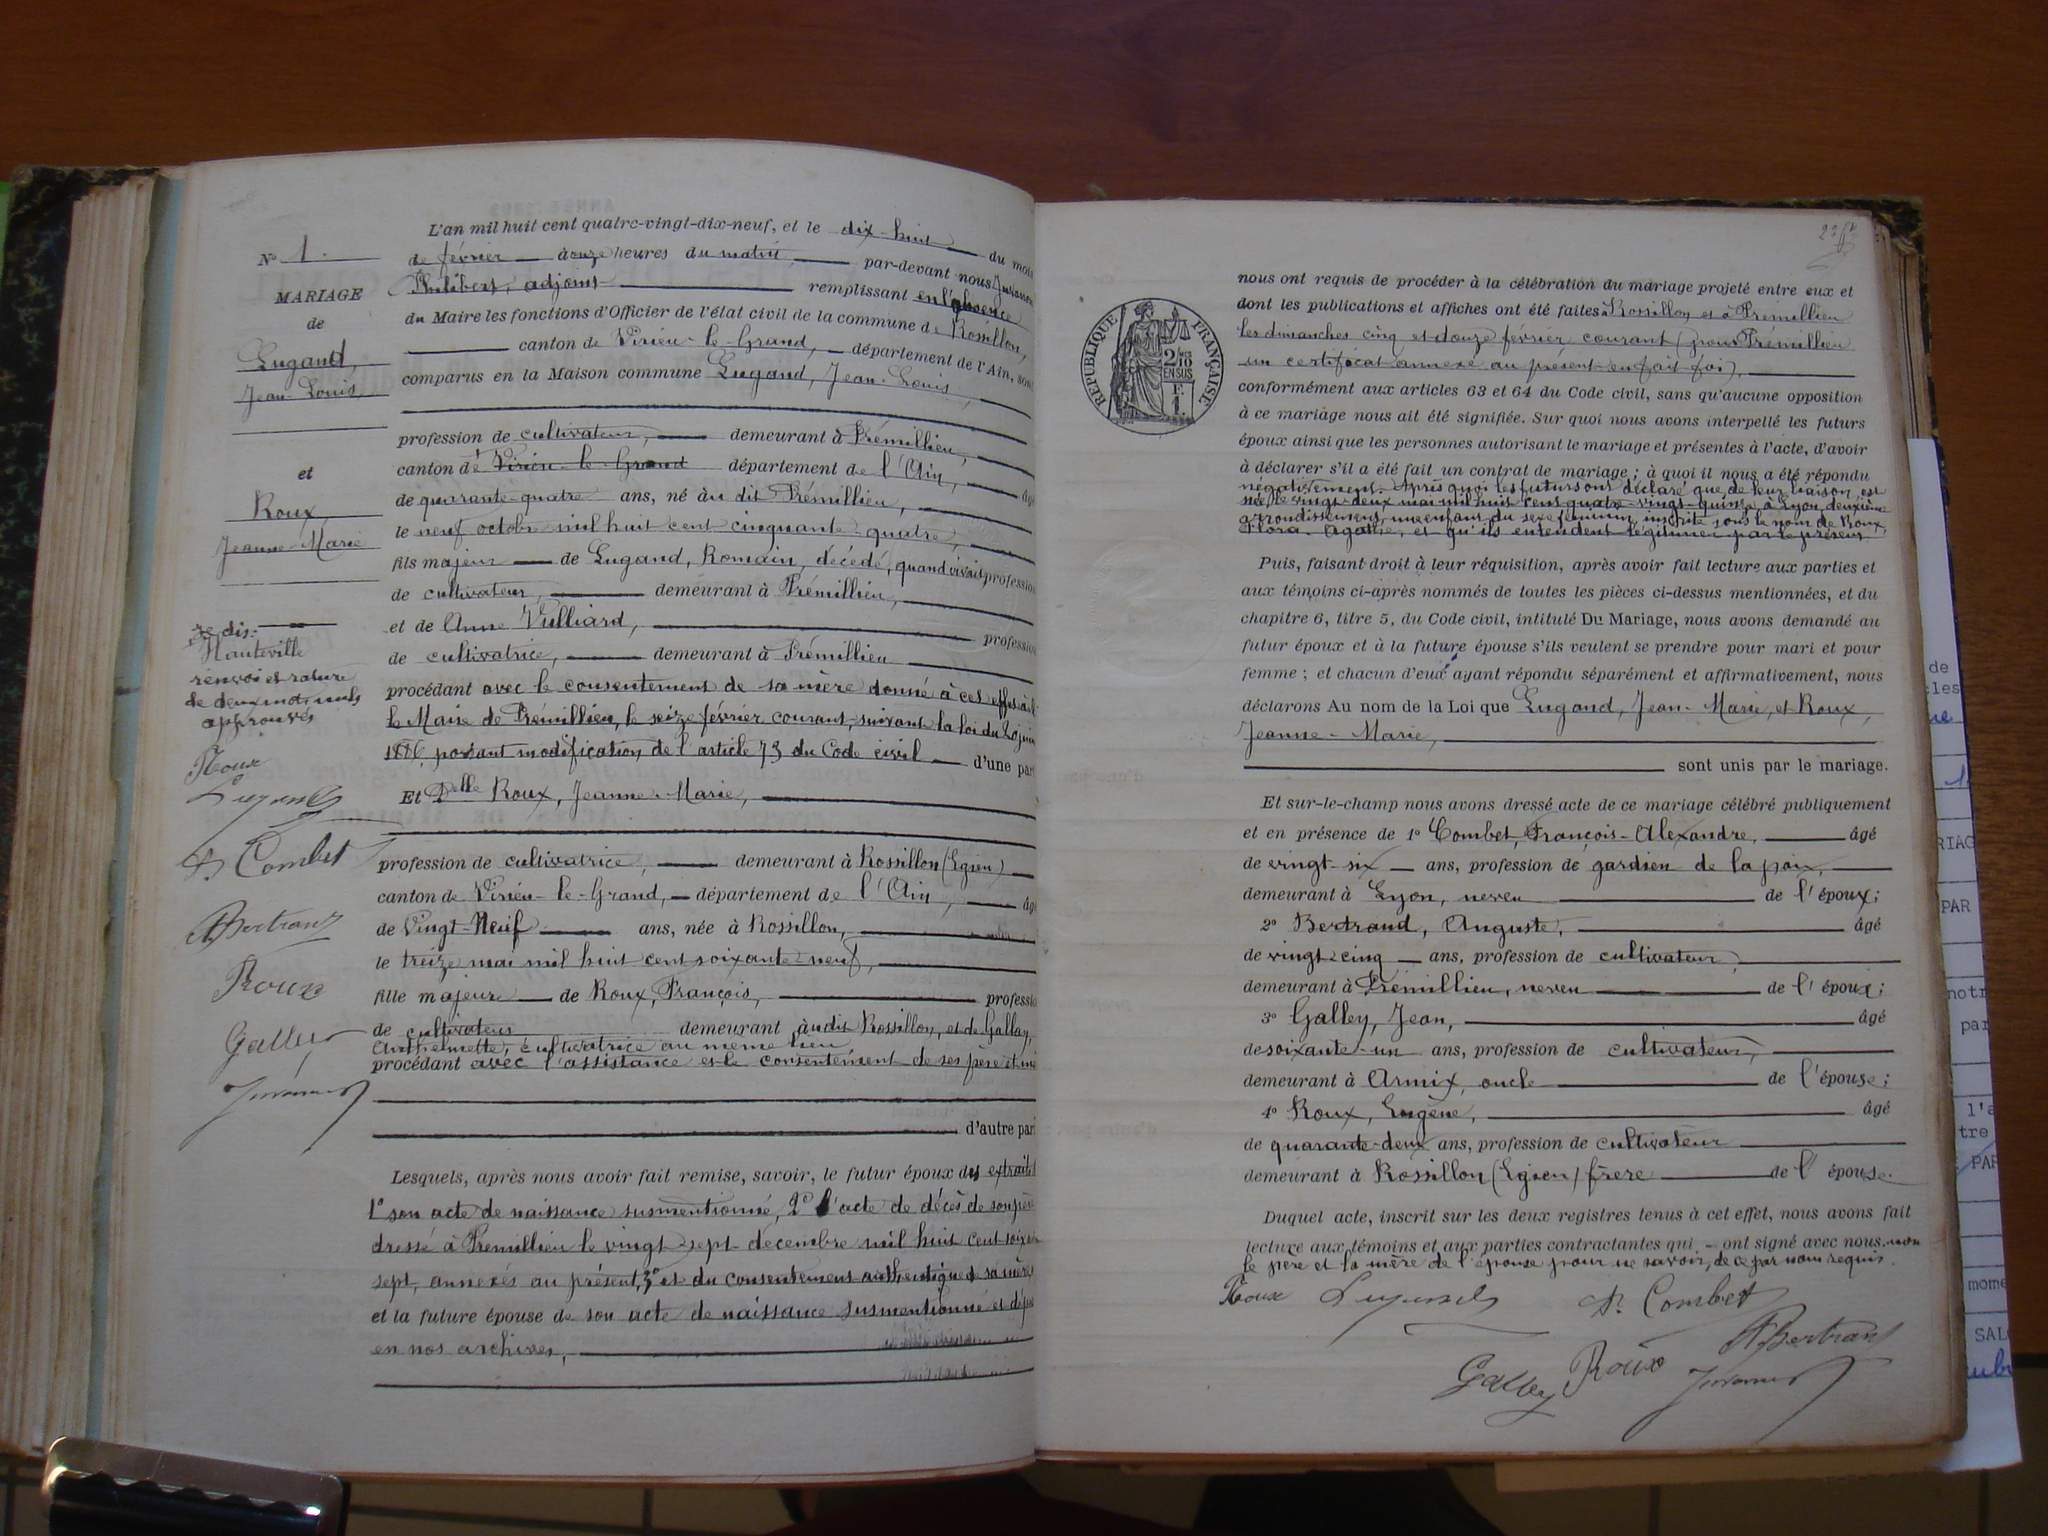 L'an mil huit cent quatre-vingt-dix-neuf, et le dix-huit du mois
de février douze heures du matin par-devant nous
Philibert, adjoint remplissant en l'absence
du Maire les fonctions d'Officier de l'état civil de la commune de Rossillon,
canton de Virieu-le-Grand, département de l'Ain, sont
comparus en la Maison commune Lugand, Jean-Louis,
profession de cultivateur, demeurant à Prémillieu,
canton de Virieu-le-Grand département de l'Ain, âgé
de quarante-quatre ans, né au dit Prémillieu,
le neuf octobre mil huit cent cinquante-quatre,
fils majeur de Lugand, Romain, décédé, quand vivait profession
de cultivateur, demeurant à Prémillieu,
et de Anne Vulliard, profession
de cultivatrice, demeurant à Prémillieu
procédant avec le consentement de sa mère donné à cet effet
le Maire de Prémillieu, le seize février courant, suivant la loi du 20 juin
1896 portant modification de l'article 73 du Code civil d'une part
Et Delle Roux, Jeanne-Marie,
profession de cultivatrice, demeurant à Rossillon (Egieu)
canton de Virieu-le-Grand, département de l'Ain, âgé
de Vingt-Neuf ans, née à Rossillon,
le treize mai mil huit cent soixante neuf,
fille majeure de Roux, François, profession
de cultivateur demeurant audit Rossillon, et de Gallay,
Anthelmette, cultivatrice au même lieu
procédant avec l'assistance et le consentement de ses père et
d'autre part
Lesquels, après nous avoir fait remise, savoir, le futur époux des extraits
1° son acte de naissance susmentionné, 2° l'acte de décès de son père
dressé à Prémillieu le vingt-sept décembre mil huit cent
sept, annexés au présent, 3° et du consentement authentique de sa mère
et la future épouse de son acte de naissance susmentionné et
en nos archives,
N° 1.
MARIAGE
de
Lugand,
Jean-Louis
et
Roux
Jeanne-Marie
je dis:
Hauteville
renvoi et rature
de deux mots nuls
approuvés
Roux
Combet
ABertrand
Roux
Galley
RÉPUBLIQUE FRANÇAISE
2/10
EN SUS
F.
1.
nous ont requis de procéder à la célébration du mariage projeté entre eux et
dont les publications et affiches ont été faites à Rossillon et à Prémillieu
les dimanches cinq et douze février courant (pour Prémillieu
un certificat annexé au présent en fait foi),
conformément aux articles 63 et 64 du Code civil, sans qu'aucune opposition
à ce mariage nous ait été signifiée. Sur quoi nous avons interpellé les futurs
époux ainsi que les personnes autorisant le mariage et présentes à l'acte, d'avoir
à déclarer s'il a été fait un contrat de mariage ; à quoi il nous a été répondu
négativement. Après quoi les futurs ont déclaré que de leur liaison est
née le vingt-deux mai mil huit cent quatre-vingt-quinze à Lyon, deuxième
arrondissement, une enfant du sexe féminin, inscrite sous le nom de Roux,
Flora-Agathe, et qu'ils entendent légitimer par le présent
Puis, faisant droit à leur réquisition, après avoir fait lecture aux parties et
aux témoins ci-après nommés de toutes les pièces ci-dessus mentionnées, et du
chapitre 6, titre 5, du Code civil, intitulé Du Mariage, nous avons demandé au
futur époux et à la future épouse s'ils veulent se prendre pour mari et pour
femme ; et chacun d'eux ayant répondu séparément et affirmativement, nous
déclarons Au nom de la Loi que Lugand, Jean-Marie, et Roux,
Jeanne-Marie,
sont unis par le mariage.
Et sur-le-champ nous avons dressé acte de ce mariage célébré publiquement
et en présence de 1° Combet, François-Alexandre, âgé
de vingt-six ans, profession de gardien de la paix,
demeurant à Lyon, neveu de l'époux;
2° Bertrand, Auguste, âgé
de vingt-cinq ans, profession de cultivateur,
demeurant à Prémillieu, neveu de l'époux;
3° Galley, Jean, âgé
de soixante-un ans, profession de cultivateur,
demeurant à Armix, oncle de l'épouse;
4° Roux, Eugène, âgé
de quarante-deux ans, profession de cultivateur
demeurant à Rossillon (Egieu) frère de l'épouse.
Duquel acte, inscrit sur les deux registres tenus à cet effet, nous avons fait
lecture aux témoins et aux parties contractantes qui ont signé avec nous, non
le père et la mère de l'épouse pour ne savoir, de ce par nous requis.
Roux Combet
ABertrand
Galley Roux